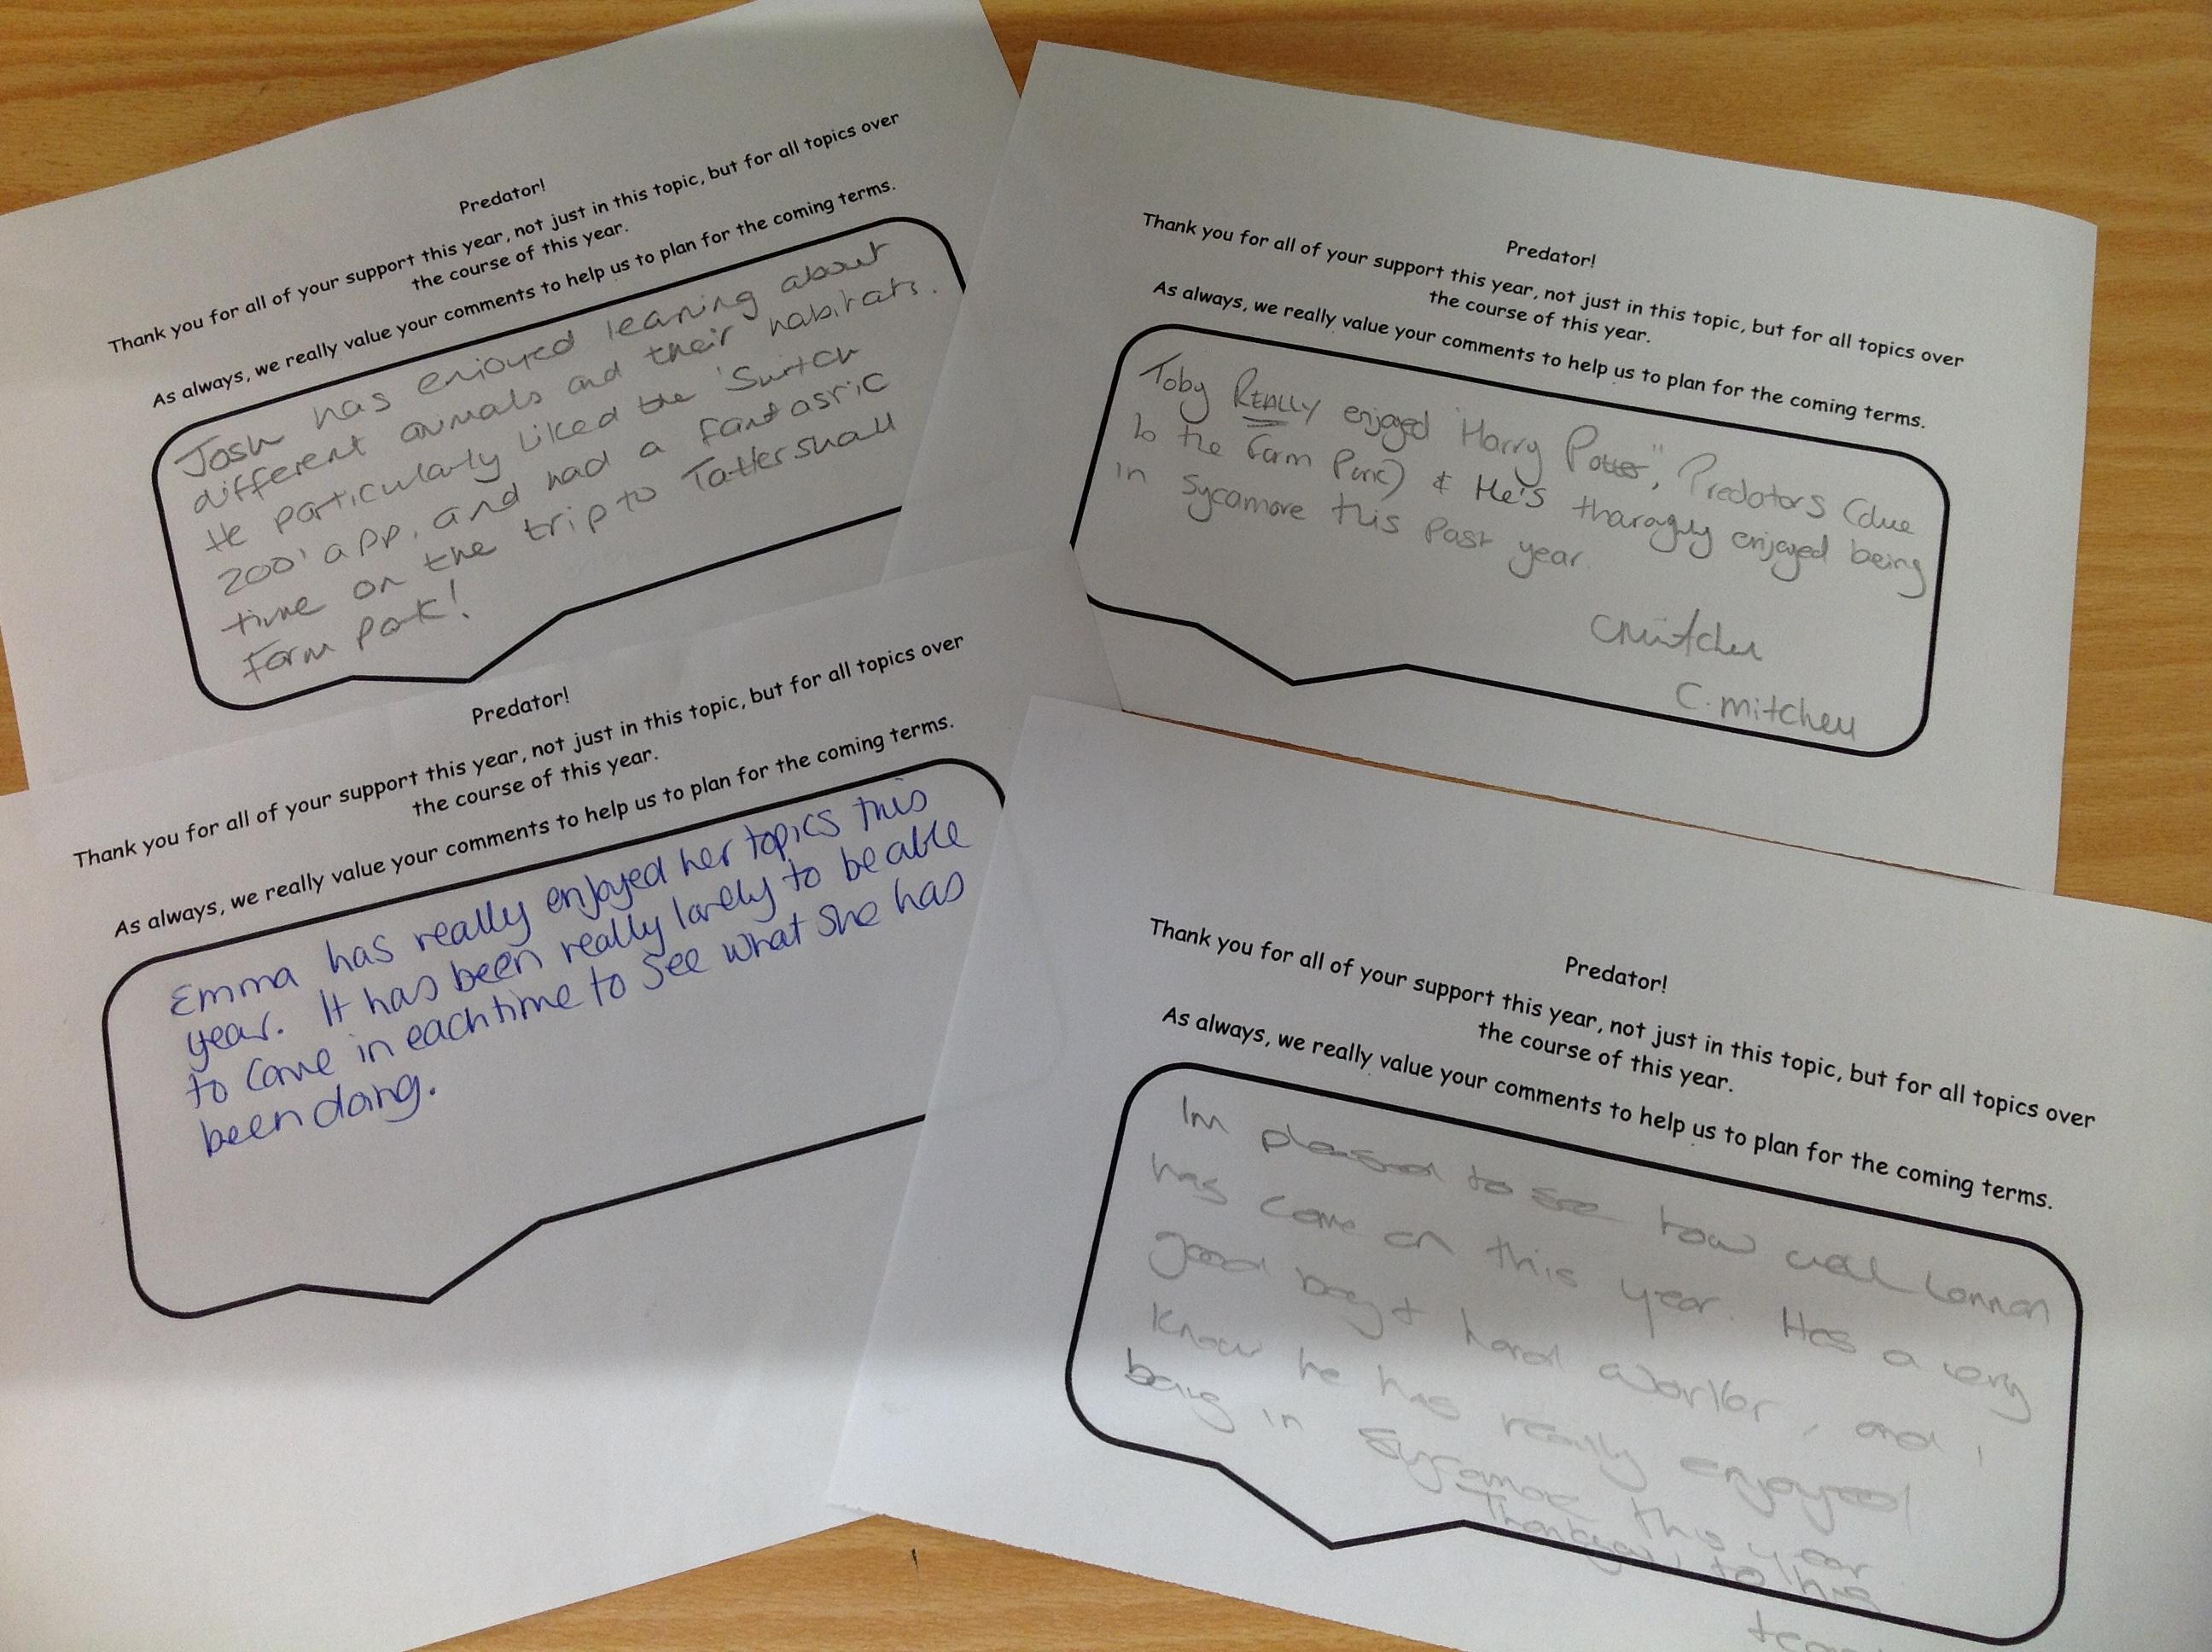 Predator!
Thank you for all of your support this year, not just in this topic, but for all topics over
the course of this year.
As always, we really value your comments to help us to plan for the coming terms.
Josh has enjoyed learning about
different animals and their habitats.
He particularly liked the 'Switch
Zoo' app, and had a fantastic
time on the trip to Tattershall
Farm Park!
Predator!
Thank you for all of your support this year, not just in this topic, but for all topics over
the course of this year.
As always, we really value your comments to help us to plan for the coming terms.
Toby REALLY enjoyed "Harry Potter", Predators (due
to the Farm Park) & He's thoroughly enjoyed being
in Sycamore this past year.
CMitchell
C. mitchell
Predator!
Thank you for all of your support this year, not just in this topic, but for all topics over
the course of this year.
As always, we really value your comments to help us to plan for the coming terms.
Emma has really enjoyed her topics this
year. It has been really lovely to be able
to come in each time to see what she has
been doing.
Predator!
Thank you for all of your support this year, not just in this topic, but for all topics over
the course of this year.
As always, we really value your comments to help us to plan for the coming terms.
Im pleased to see how well Lennon
has come on this year. Hes a very
good boy + hard worker, and I
know he has really enjoyed
being in Sycamore this year
Thankyou to his